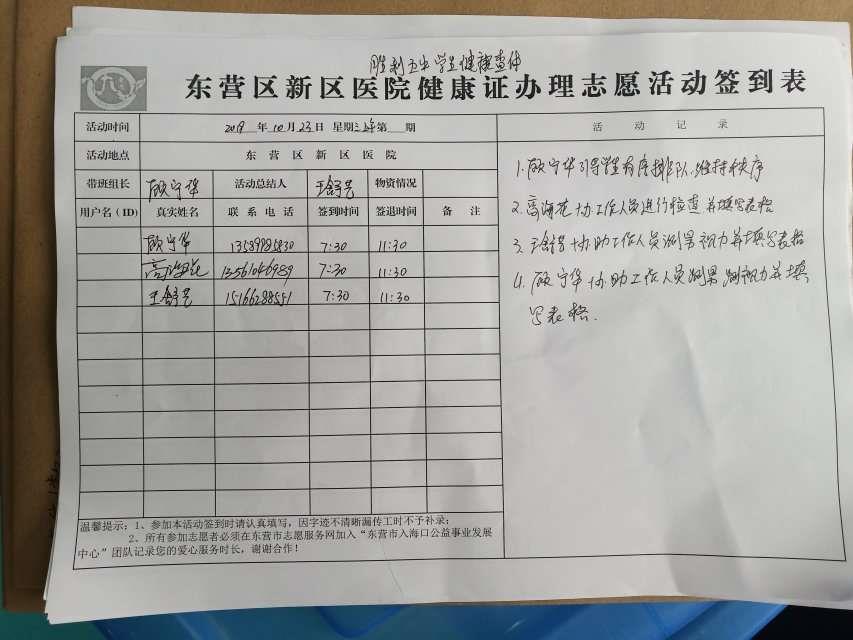 胜利卫生学生健康查体
东营区新区医院健康证办理志愿活动签到表
活动时间 2019年10月23日 星期三 第 期 活动记录
活动地点 东营区新区医院
带班组长 顾宁华 活动总结人 物资情况
用户名(ID) 真实姓名 联系电话 签到时间 签退时间 备注
顾宁华 13589985830 7:30 11:30
高海花 13561046989 7:30 11:30
15166288551 7:30 11:30
1. 顾宁华引导学生有序排队,维持秩序
2. 高海花协工作人员进行检查并填写表格
3. 协助工作人员测视力并填写表格
4. 顾宁华协助工作人员测视力并填
写表格.
温馨提示:1、参加本活动签到时请认真填写,因字迹不清晰漏传工时不予补录;
2、所有参加志愿者必须在东营市志愿服务网加入“东营市入海口公益事业发展
中心”团队记录您的爱心服务时长,谢谢合作!